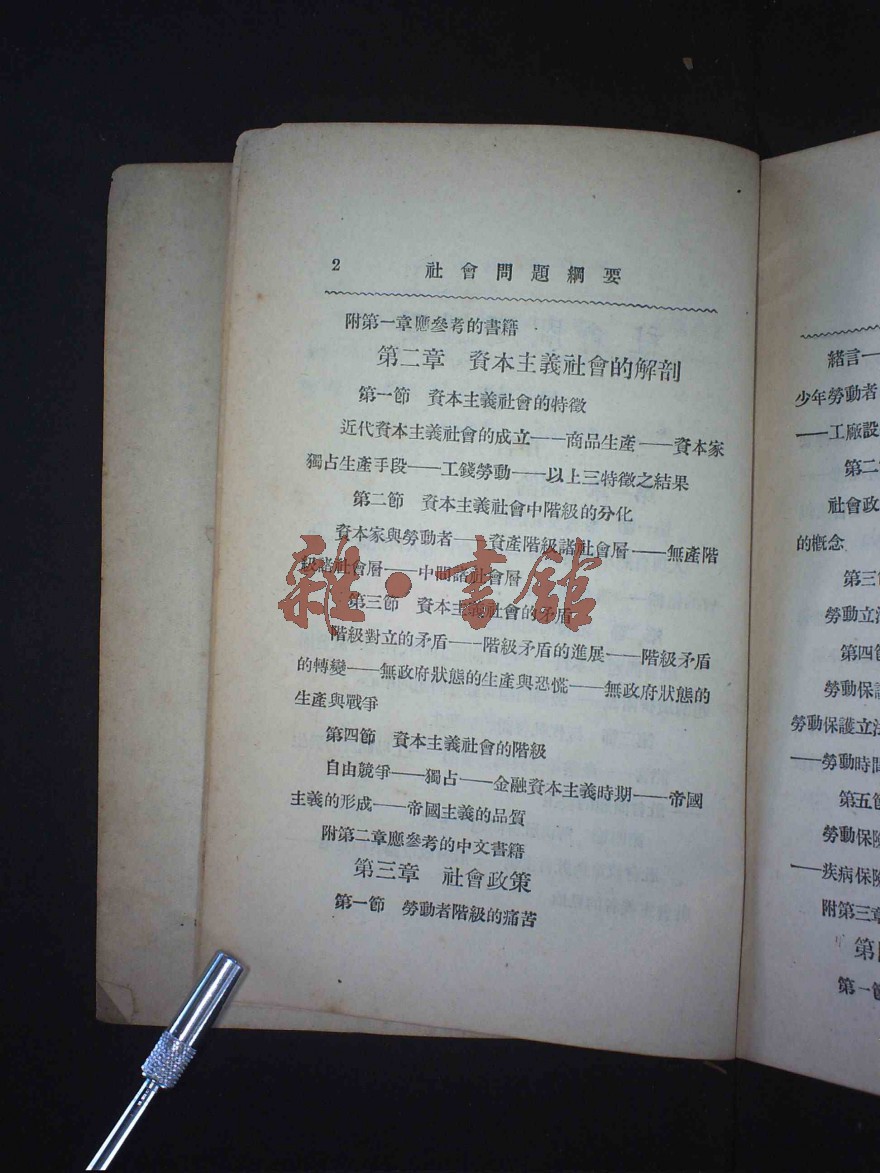 2 社會問題綱要
附第一章應參考的書籍
第二章 資本主義社會的解剖
第一節 資本主義社會的特徵
近代資本主義社會的成立——商品生產——資本家
獨占生產手段——工錢勞動——以上三特徵之結果
第二節 資本主義社會中階級的分化
資本家與勞動者——資產階級諸社會層——無產階
級諸社會層——中間諸社會層
第三節 資本主義社會的矛盾
階級對立的矛盾——階級矛盾的進展——階級矛盾
的轉變——無政府狀態的生產與恐慌——無政府狀態的
生產與戰爭
第四節 資本主義社會的階級
自由競爭——獨占——金融資本主義時期——帝國
主義的形成——帝國主義的品質
附第二章應參考的中文書籍
第三章 社會政策
第一節 勞動者階級的痛苦
雜·書館
緒言—
少年勞動者
——工廠設
第二
社會政
的概念
第三
勞動立法
第四節
勞動保護
勞動保護立法
——勞動時間
第五節
勞動保險
——疾病保險
附第三章
第
第一節